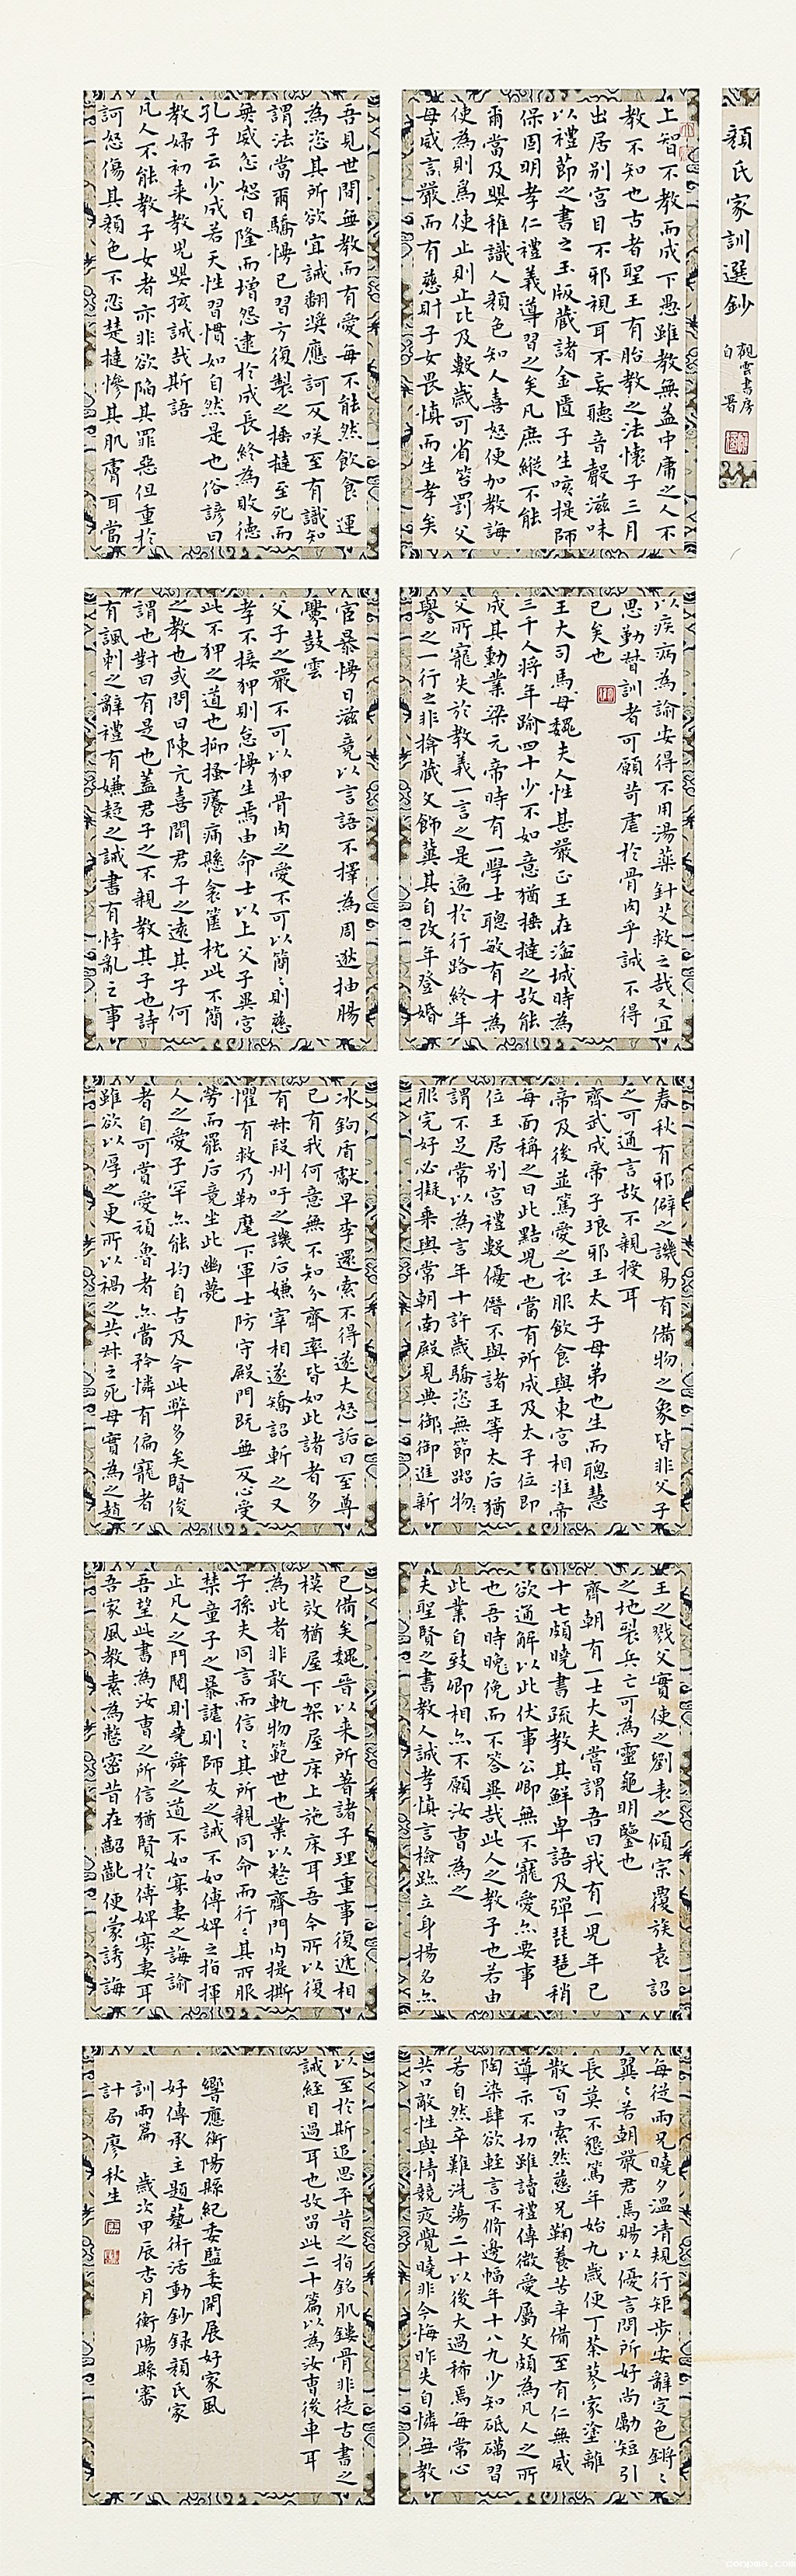 顏氏家訓選鈔
觀雲書房
自署
上智不教而成下愚雖教無益中庸之人不
教不知也古者聖王有胎教之法懷子三月
出居別宮目不邪視耳不妄聽音聲滋味
以禮節之書之玉版藏諸金匱子生咳提師
保固明孝仁禮義導習之矣凡庶縱不能
爾當及嬰稚識人顏色知人喜怒便加教誨
使為則為使止則止比及數歲可省笞罰父
母威嚴而有慈則子女畏慎而生孝矣
吾見世間無教而有愛每不能然飲食運
為恣其所欲宜誡翻獎應訶反咲至有識知
謂法當爾驕慢已習方復製之捶撻至死而
無威忿怒日隆而增怨逮於成長終為敗德
孔子云少成若天性習慣如自然是也俗諺曰
教婦初來教兒嬰孩誠哉斯語
凡人不能教子女者亦非欲陷其罪惡但重於
訶怒傷其顏色不忍楚撻慘其肌膚耳當
以疾病為諭安得不用湯藥針艾救之哉又宜
思勤督訓者可願苛虐於骨肉乎誠不得
已矣也
王大司馬母魏夫人性甚嚴正王在湓城時為
三千人將年踰四十少不如意猶捶撻之故能
成其勳業梁元帝時有一學士聰敏有才為
父所寵失於教義一言之是遍於行路終年
譽之一行之非揜藏文飾冀其自改年登婚
宦暴慢日滋竟以言語不擇為周逖抽腸
釁鼓雲
父子之嚴不可以狎骨肉之愛不可以簡〻則慈
孝不接狎則怠慢生焉由命士以上父子異宮
此不狎之道也抑搔癢痛懸衾篋枕此不簡
之教也或問曰陳亢喜聞君子之遠其子何
謂也對曰有是也蓋君子之不親教其子也詩
有諷刺之辭禮有嫌疑之誡書有悖亂之事
春秋有邪僻之譏易有備物之象皆非父子
之可通言故不親授耳
齊武成帝子琅邪王太子母弟也生而聰慧
帝及後並篤愛之衣服飲食與東宮相准帝
每面稱之曰此黠兒也當有所成及太子位即
位王居別宮禮數優僭不與諸王等太后猶
謂不足常以為言年十許歲驕恣無節器服
服完好必擬乘輿常朝南殿見典御御進新
冰鉤盾獻早李還索不得遂大怒詬曰至尊
已有我何意無不知分齊率皆如此諸者多
有叔段州吁之譏后嫌宰相遂矯詔斬之又
懼有救乃勒麾下軍士防守殿門既無反心受
勞而罷后竟坐此幽薨
人之愛子罕亦能均自古及今此弊多矣賢俊
者自可賞愛頑魯者亦當矜憐有偏寵者
雖欲以厚之更所以禍之共叔之死母實為之趙
王之戮父實使之劉表之傾宗覆族袁詔
之地裂兵亡可為靈龜明鑒也
齊朝有一士大夫嘗謂吾曰我有一兒年已
十七頗曉書疏教其鮮卑語及彈琵琶稍
欲通解以此伏事公卿無不寵愛亦要事
也吾時俛而不答異哉此人之教子也若由
此業自致卿相亦不願汝曹為之
夫聖賢之書教人誠孝慎言檢跡立身揚名亦
已備矣魏晉以來所著諸子理重事復遞相
模效猶屋下架屋床上施床耳吾今所以復
為此者非敢軌物範世也業以整齊門內提撕
子孫夫同言而信〻其所親同命而行〻其所服
禁童子之暴謔則師友之誡不如傅婢之指揮
止凡人之鬥鬩則堯舜之道不如寡妻之誨諭
吾望此書為汝曹之所信猶賢於傅婢寡妻耳
吾家風教素為整密昔在齠齔便蒙誘誨
每從兩兄曉夕溫凊規行矩步安辭定色鏘〻
翼〻若朝嚴君焉賜以優言問所好尚勵短引
長莫不懇篤年始九歲便丁荼蓼家塗離
散百口索然慈兄鞠養苦辛備至有仁無威
導示不切雖讀禮傳微愛屬文頗為凡人之所
陶染肆欲輕言不脩邊幅年十八九少知砥礪習
若自然卒難洗蕩二十以後大過稀焉每常心
共口敵性與情競夜覺曉非今悔昨失自憐無教
以至於斯追思平昔之指銘肌鏤骨非徒古書之
誡經目過耳也故留此二十篇以為汝曹後車耳
響應衡陽縣紀委監委開展好家風
好傳承主題藝術活動鈔錄顏氏家
訓兩篇 歲次甲辰杏月衡陽縣審
計局廖秋生